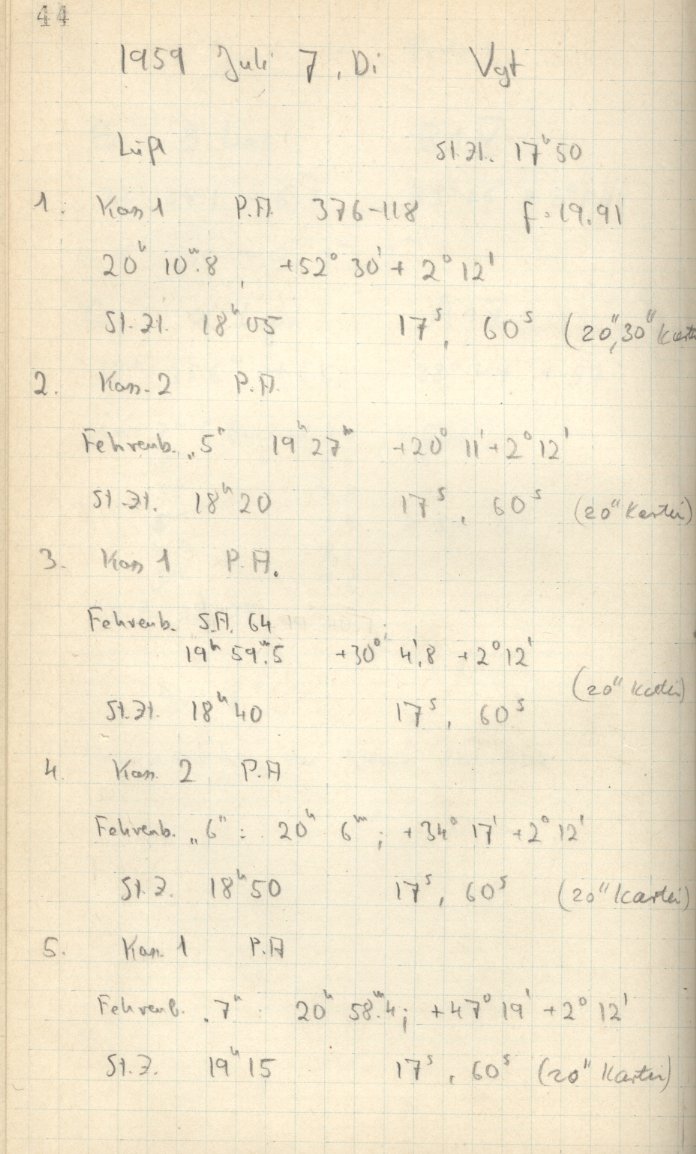 44
1959 Juli 7, Di Vgt
Lipl St.Zt. 17ʰ50
1. Kas 1 P.A. 376-118 f=19.91
20ʰ 10ᵐ.8, +52° 30' + 2° 12'
St.Zt. 18ʰ05 17ˢ, 60ˢ (20", 30" Kartei
2. Kas. 2 P.A.
Fehrenb. „5" 19ʰ 27ᵐ +20° 11' + 2° 12'
St.Zt. 18ʰ20 17ˢ, 60ˢ (20" Kartei)
3. Kas 1 P.A.
Fehrenb. S.A. 64
19ʰ 59ᵐ.5 +30° 4'.8 + 2° 12'
(20" Kartei)
St.Zt. 18ʰ40 17ˢ, 60ˢ
4. Kas. 2 P.A
Fehrenb. „6": 20ʰ 6ᵐ; +34° 17' + 2° 12'
St.Z. 18ʰ50 17ˢ, 60ˢ (20" Kartei)
5. Kas. 1 P.A
Fehrenb. „7": 20ʰ 58ᵐ.4; +47° 19' + 2° 12'
St.Z. 19ʰ15 17ˢ, 60ˢ (20" Kartei)